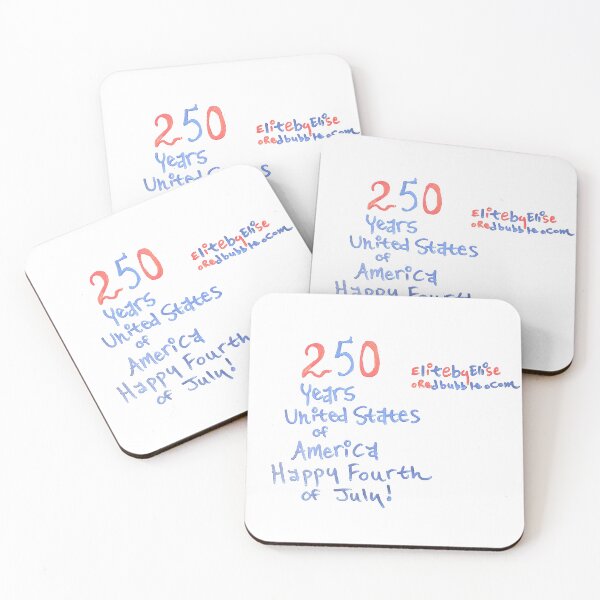 250
Years
United States
ElitebyElise
.Redbubble.com
250
Years
United States
of
America
Happy Fourth
ElitebyElise
.Redbubble.com
250
Years
United States
of
America
Happy Fourth
of July!
ElitebyElise
.Redbubble.com
250
Years
United States
of
America
Happy Fourth
of July!
ElitebyElise
.Redbubble.com